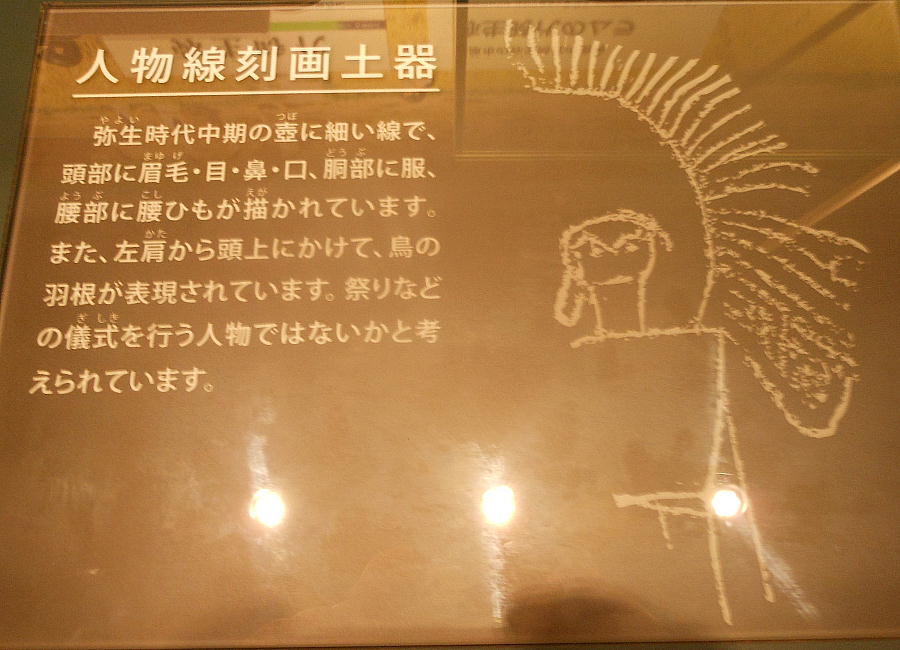 人物線刻画土器
弥生時代中期の壺に細い線で、
頭部に眉毛・目・鼻・口、胴部に服、
腰部に腰ひもが描かれています。
また、左肩から頭上にかけて、鳥の
羽根が表現されています。祭りなど
の儀式を行う人物ではないかと考
えられています。